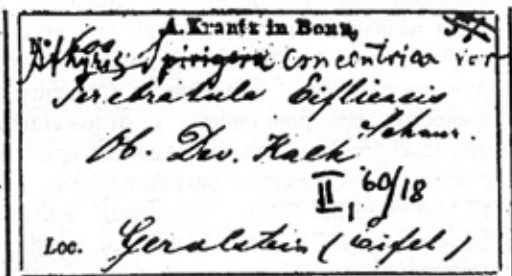 A. Krantz in Bonn,
No. Athyris Spirigera concentrica var
Terebratula Eifliensis
Schnur.
Ob. Dev. Kalk
II, 60/18
Loc. Gerolstein (Eifel)